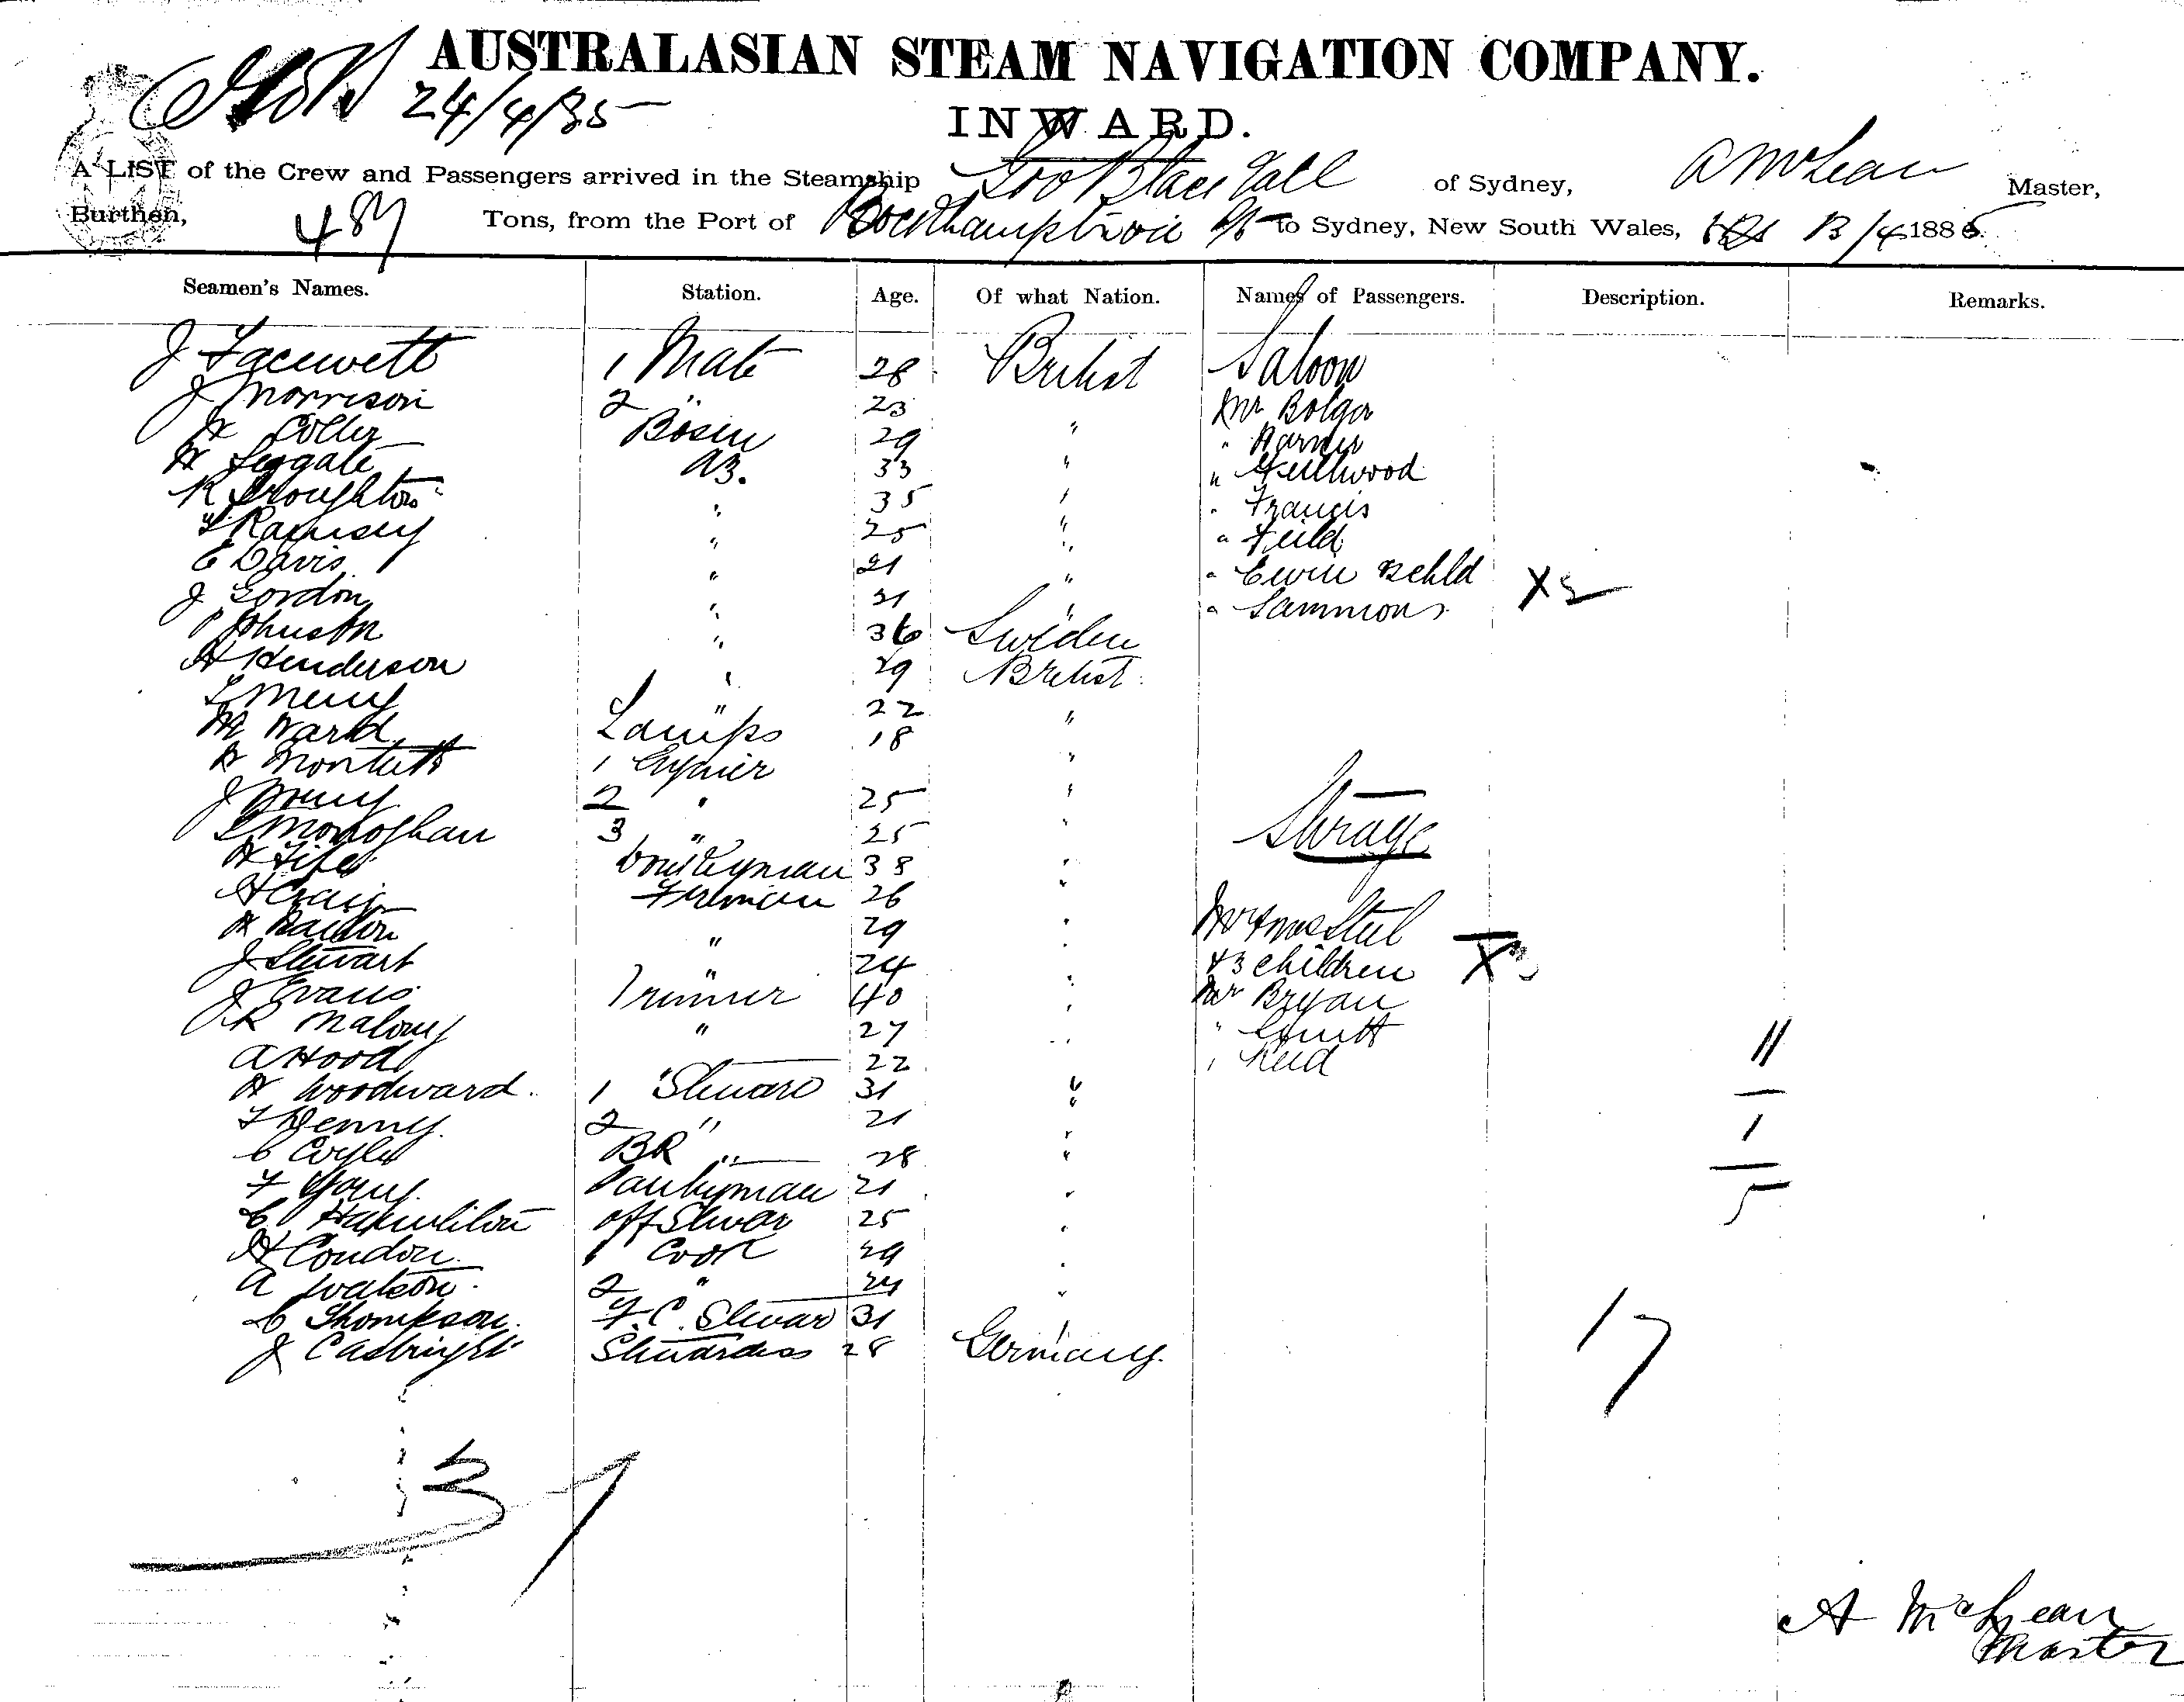 AUSTRALASIAN STEAM NAVIGATION COMPANY.
24/4/85
INWARD.
A LIST of the Crew and Passengers arrived in the Steamship of Sydney, A McLean Master,
Burthen, 487 Tons, from the Port of Rockhampton to Sydney, New South Wales, 13/4 1885.
Seamen's Names. Station. Age. Of what Nation. Names of Passengers. Description. Remarks.
J Facewett 1 Mate 28 British Saloon
J Morrison 2 " 23 Mr Bolger
Bosen 29 " "
H Leggate AB. 33 " "
R Broughton " 35 " " Francis
Ramsey " 25 " " Feild
E Davis " 21 "
J Gordon " 31 " " Sammons X2
P Johnston " 36 Sweden
A Henderson " 29 British
" 22 "
W Ward Lamps 18 "
1 "
J 2 " 25 "
Monoghan 3 " 25 " Strage
W Fife Donkeyman 38 "
H Craig Fireman 26 "
" 29 " Mr & Mrs Steel
J Stewart " 24 " & 3 children X3
J Evans Trimmer 40 " Mr Bryan
R Malony " 27 "
A Hood 22 " Reid 11
W Woodward. 1 Steward 31 "
F Denny. 2 " 21 " 1
C Coyle BR " 28 "
F Young. Pantryman 21 " 5
C Hamilton Off Stewar 25 "
H Condon. 1 Cook 29 "
A Watson. 2 " 24 "
C Thompson. F.C. Stewar 31 "
J Stewardess 28 Germany.
17
31
A McLean
Master